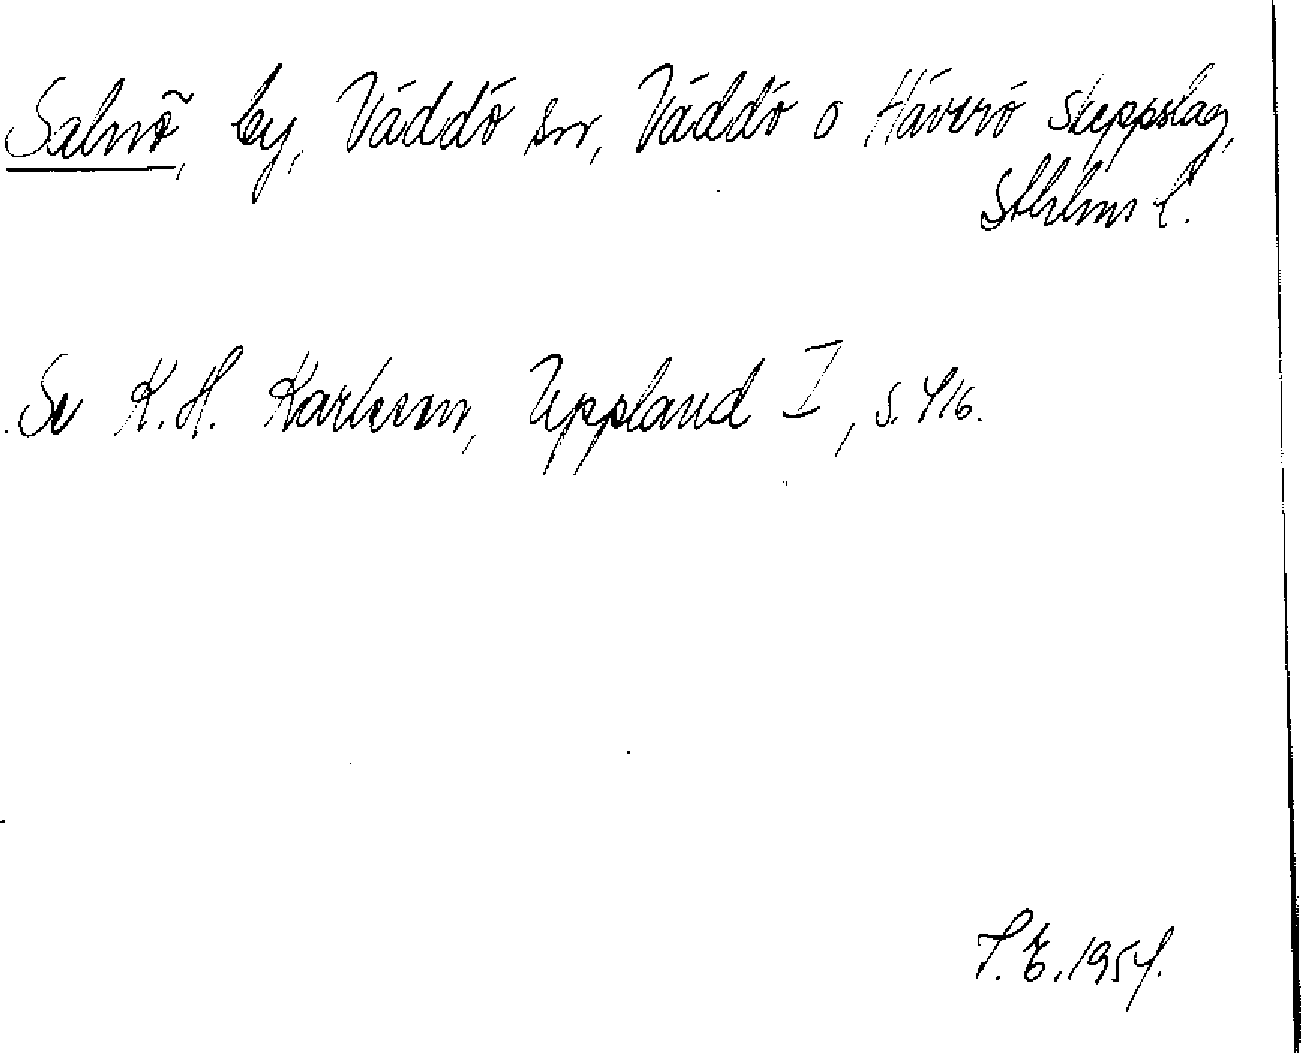 Salnö, by, Väddö sn, Väddö o Häverö skeppslag,
Sthlms l.
Se K.H. Karlsson, Uppland I, s. 416.
T.E. 1954.